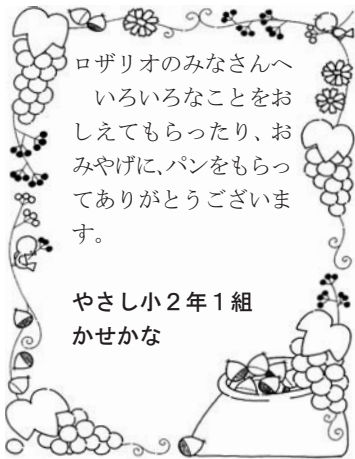 ロザリオのみなさんへ
　いろいろなことをお
しえてもらったり、お
みやげに、パンをもらっ
てありがとうございま
す。
やさし小２年１組
かせかな